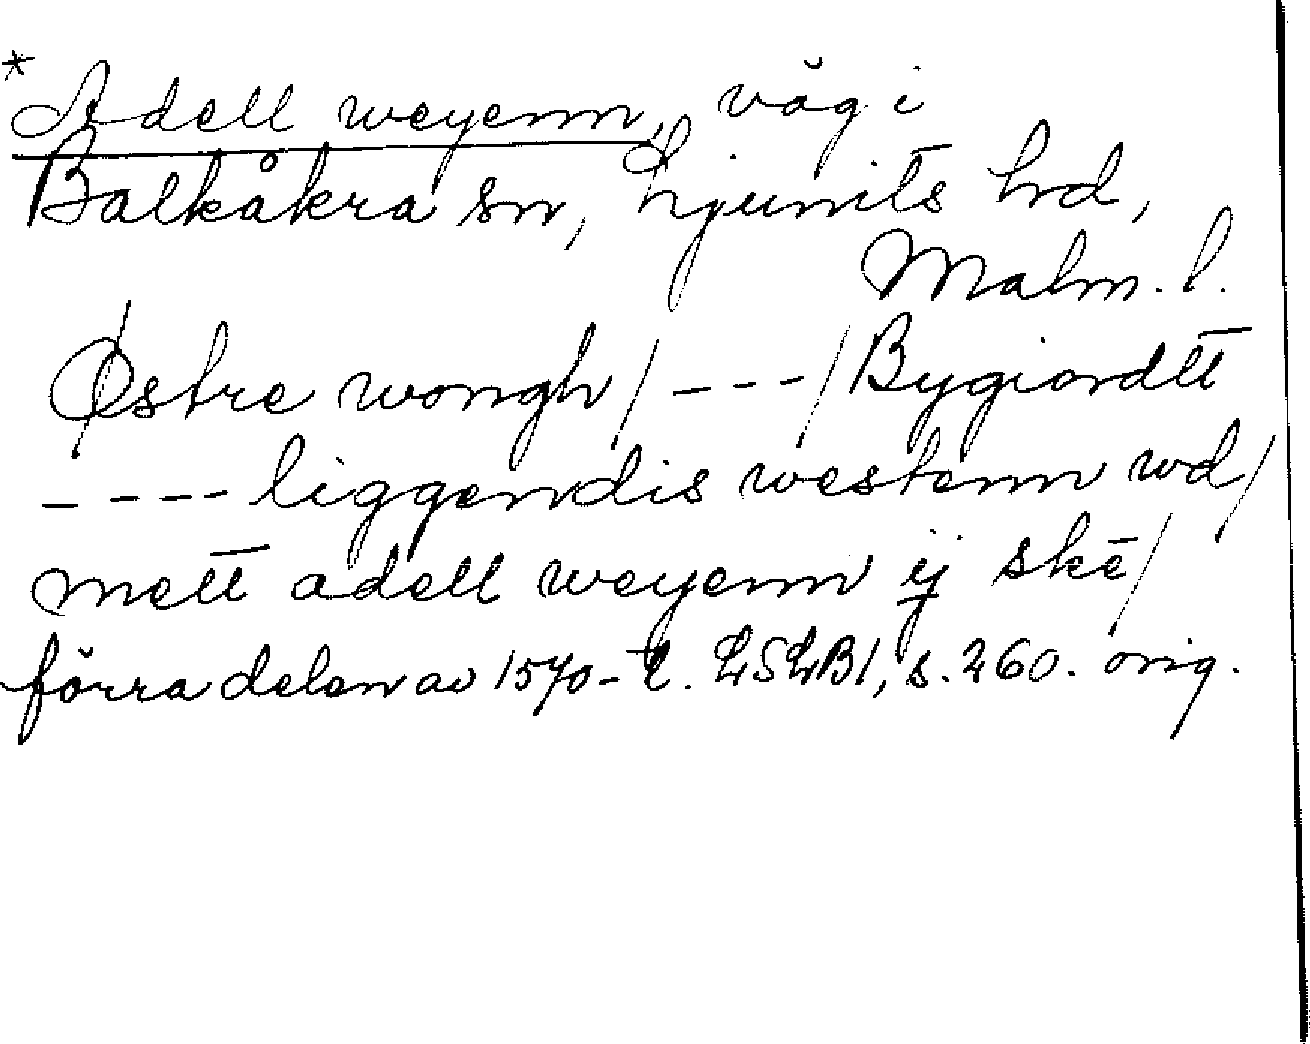 * Adell weyenn, väg i
Balkåkra sn, Ljunits hrd,
Malm. l.
Østre wongh / --- / Bygiordet̅t̅
---- liggendis westenn wd /
mett̅ adell weyenn ij skē /
förra delen av 1570-t. LSLB1, s. 260. orig.